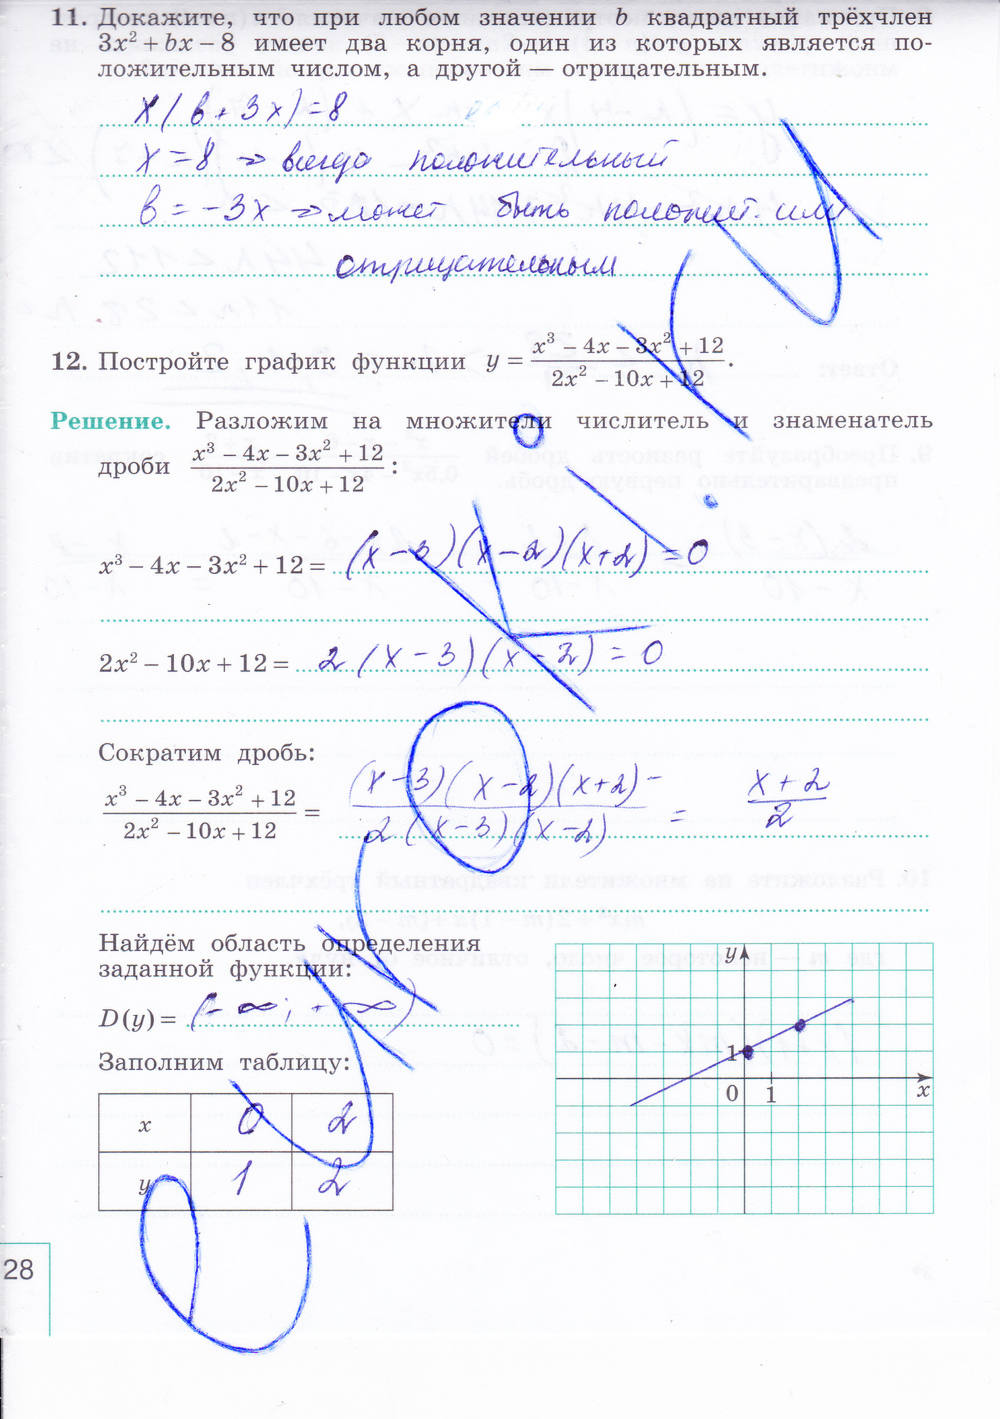 11. Докажите, что при любом значении b квадратный трёхчлен
3x² + bx - 8 имеет два корня, один из которых является по-
ложительным числом, а другой — отрицательным.
x(b + 3x) = 8
x = 8 => всегда положительный
b = -3x => может быть положит. или
отрицательным
12. Постройте график функции y = (x³ - 4x - 3x² + 12)/(2x² - 10x + 12).
Решение. Разложим на множители числитель и знаменатель
дроби (x³ - 4x - 3x² + 12)/(2x² - 10x + 12):
x³ - 4x - 3x² + 12 = (x - 3)(x - 2)(x + 2) = 0
2x² - 10x + 12 = 2(x - 3)(x - 2) = 0
Сократим дробь:
(x³ - 4x - 3x² + 12)/(2x² - 10x + 12) = ((x - 3)(x - 2)(x + 2))/(2(x - 3)(x - 2)) = (x + 2)/2
Найдём область определения
заданной функции:
D(y) = (-∞; +∞)
Заполним таблицу:
x 0 2
y 1 2
y
1
0 1 x
28